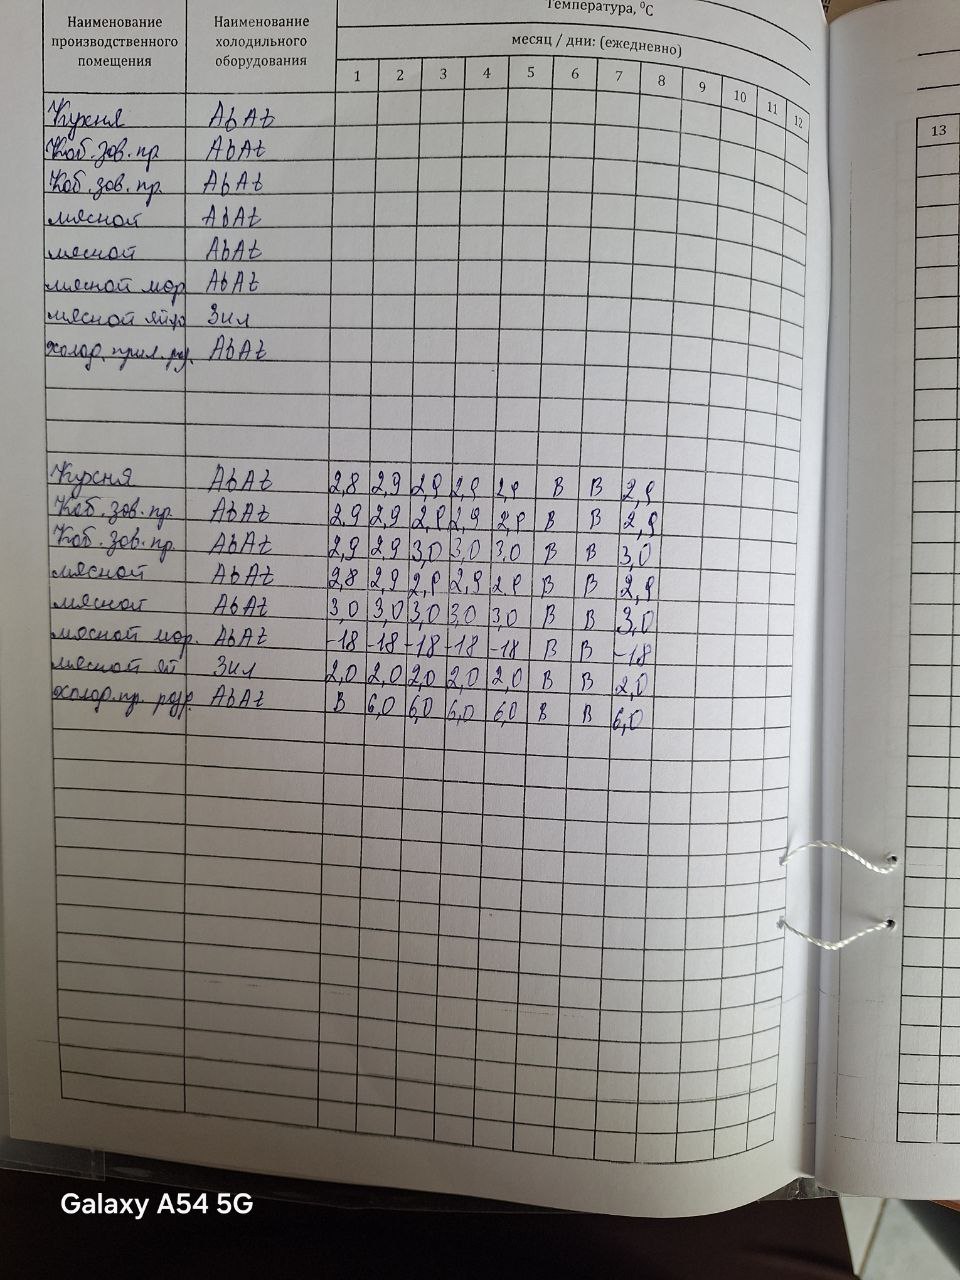 Температура, ⁰С
Наименование производственного помещения
Наименование холодильного оборудования
месяц / дни: (ежедневно)
1 2 3 4 5 6 7 8 9 10 11 12
13
Кухня AbAt
Каб. зав. пр AbAt
Каб. зав. пр. AbAt
мясной AbAt
мясной AbAt
мясной мор AbAt
мясной яйцо Зил
холод. прил. AbAt
Кухня AbAt 2,8 2,9 2,9 2,9 2,9 В В 2,9
Каб. зав. пр. AbAt 2,9 2,9 2,9 2,9 2,9 В В 2,9
Каб. зав. пр. AbAt 2,9 2,9 3,0 3,0 3,0 В В 3,0
мясной AbAt 2,8 2,9 2,9 2,9 2,9 В В 2,9
мясной AbAt 3,0 3,0 3,0 3,0 3,0 В В 3,0
мясной мор. AbAt -18 -18 -18 -18 -18 В В -18
мясной яй Зил 2,0 2,0 2,0 2,0 2,0 В В 2,0
холод. пр. разд. AbAt В 6,0 6,0 6,0 6,0 В В 6,0
Galaxy A54 5G